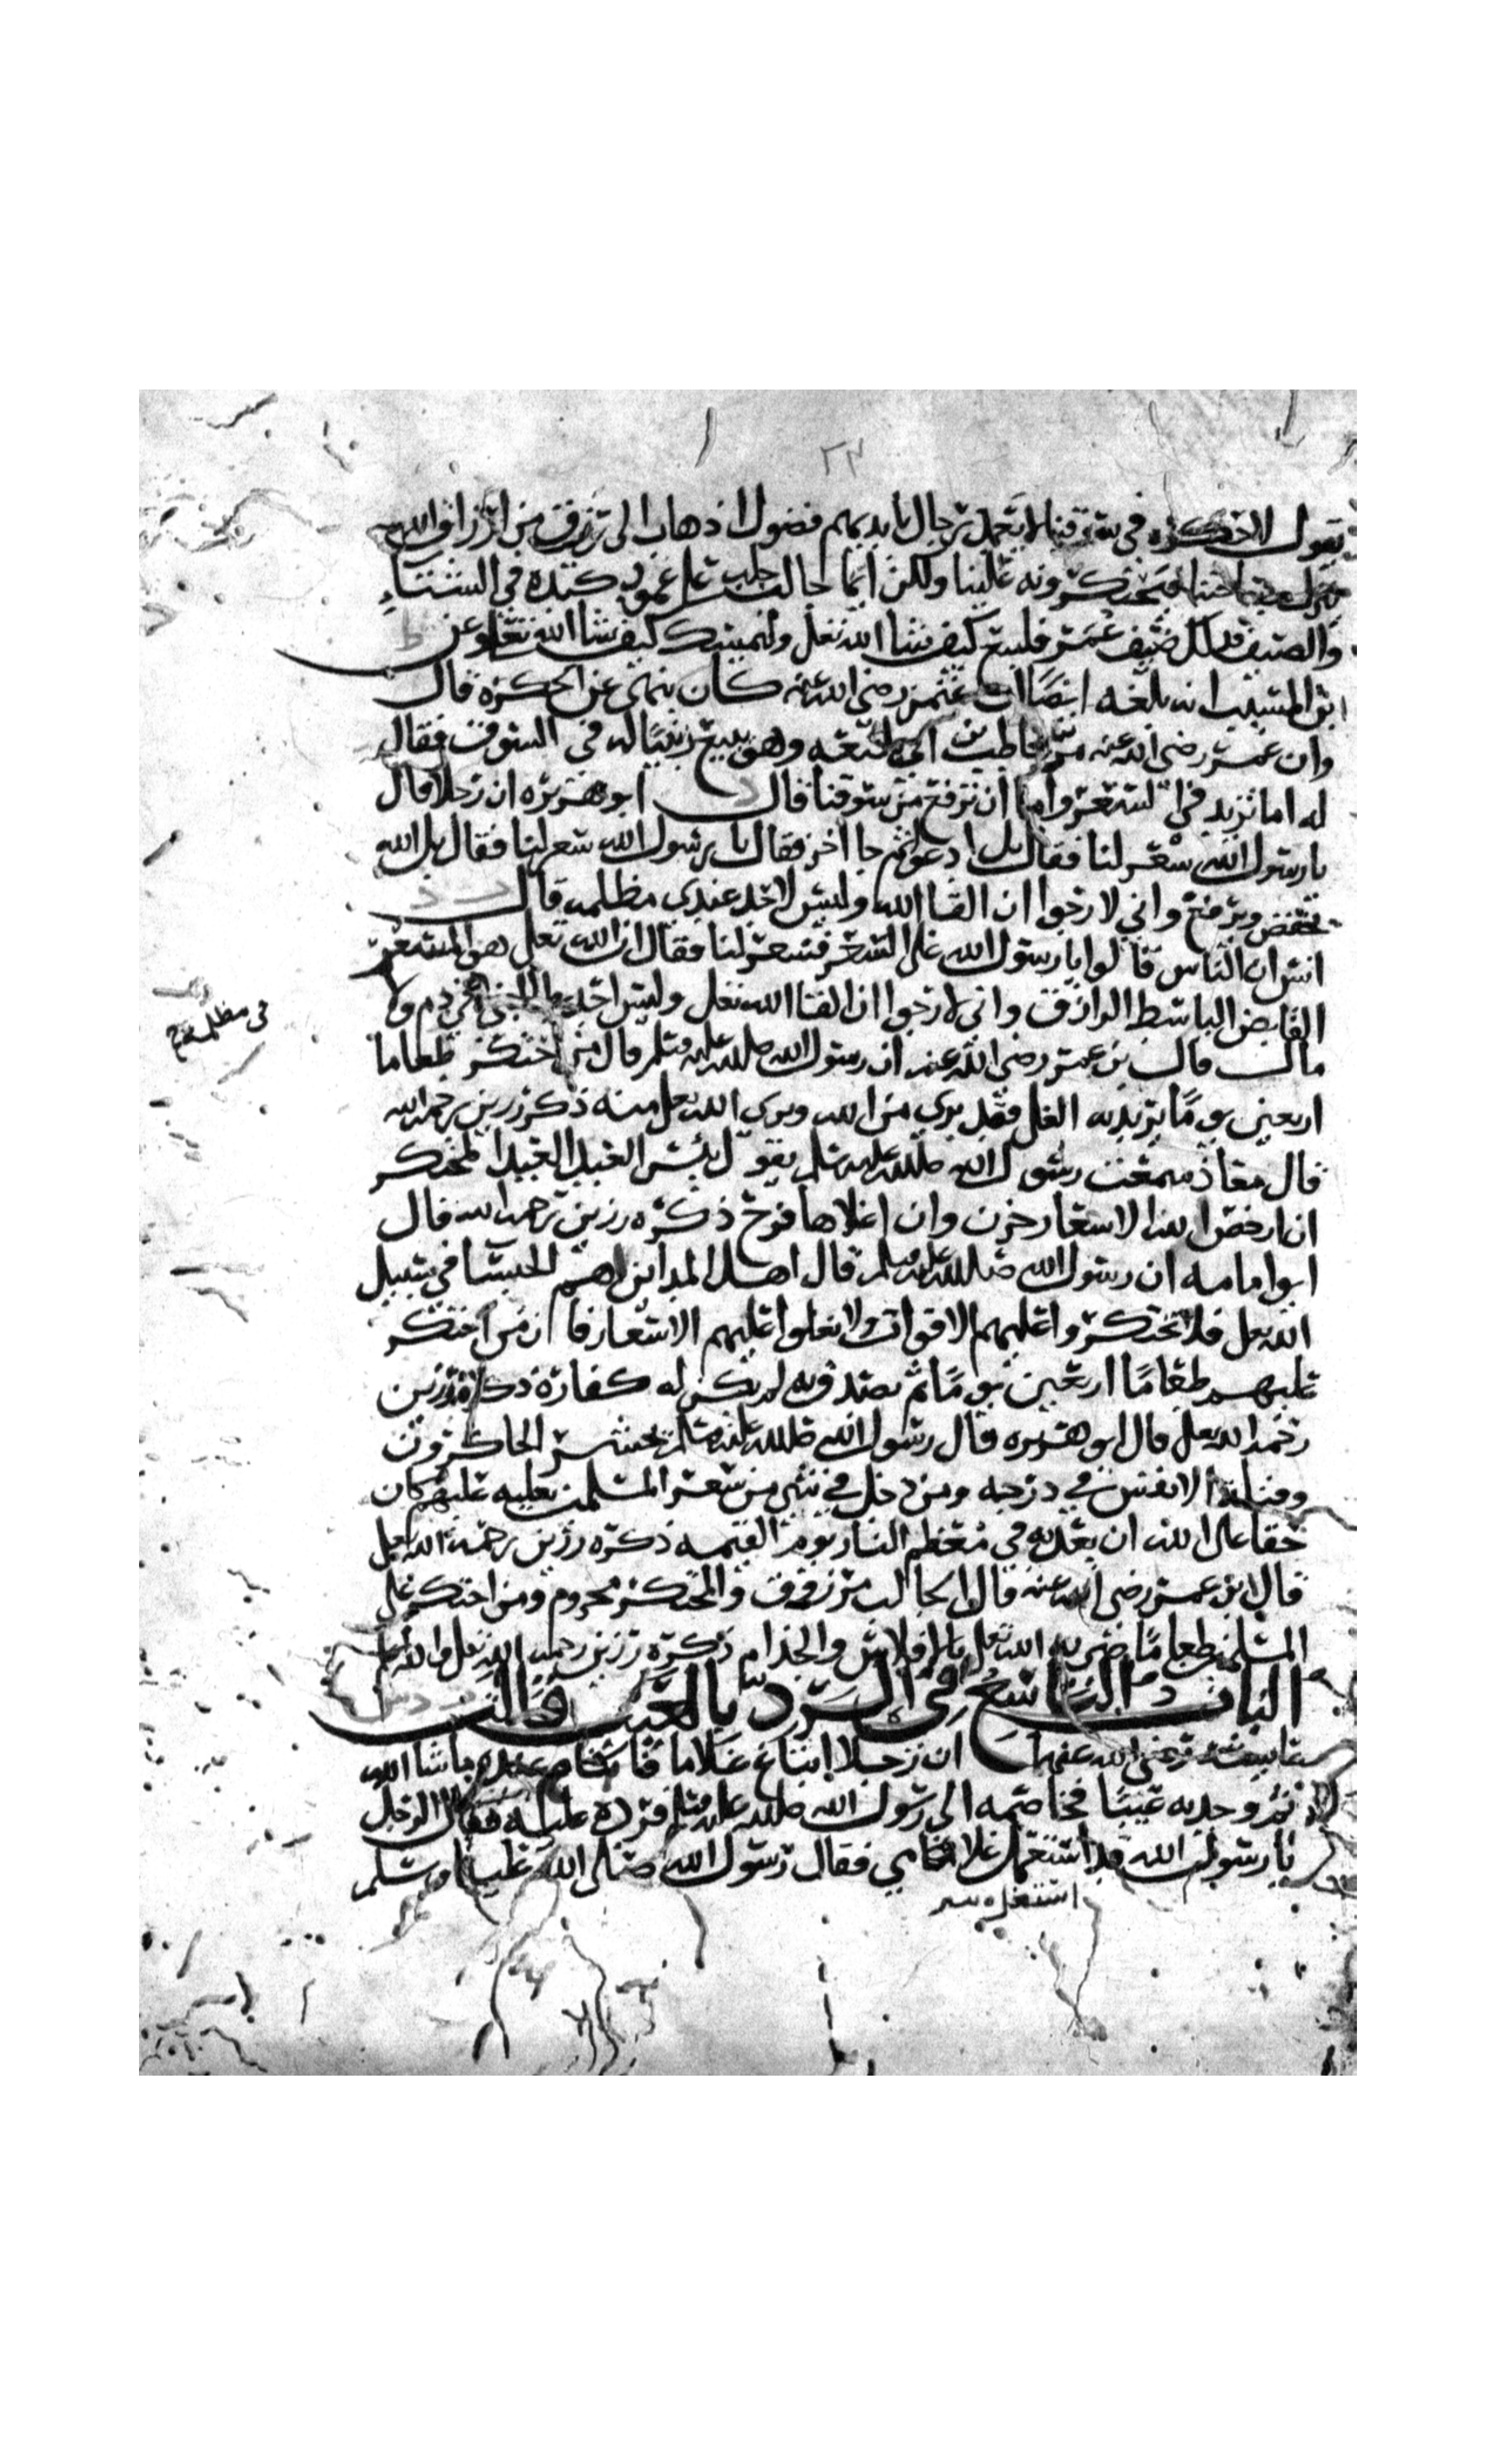 ٢٣
يقول لا حكرة في سوقنا لا يعمد رجال بايديهم فضول اذهاب الى رزق من ارزاق الله
نزل بساحتنا فيحتكرونه علينا ولكن ايما جالب جلب على عمود كبده في الشتاء
والصيف فذلك ضيف عمر فليبع كيف شا الله تعلى وليمسك كيف شا الله تعلى وعن ط
ابن المسيب انه بلغه ايضا ان عثمن رضي الله عنه كان ينهى عن الحكرة قال
وان عمر رضي الله عنه مر بحاطب بن ابي بلتعه وهو يبيع زبيبا له في السوق فقال
له اما تزيد في السعر واما ان ترفع من سوقنا قال د ابو هريره ان رجلا قال
يا رسول الله سعر لنا فقال بل ادعوا ثم جا اخر فقال يا رسول الله سعر لنا فقال بل الله
يخفض ويرفع واني لارجوا ان القا الله وليس لاحد عندي مظلمه قال
انس ان الناس قالوا يا رسول الله غلى السعر فسعر لنا فقال ان الله تعلى هو المسعر
القابض الباسط الرازق واني لارجوا ان القا الله تعلى وليس احد يطالبني في دم ولا
في مظلمه
مال قال بن عمر رضي الله عنه ان رسول الله صلى الله عليه وسلم قال من احتكر طعاما
اربعين يوما يريد به الغلى فقد بري من الله وبرى الله تعلى منه ذكره رزين رحمه الله
قال معاذ سمعت رسول الله صلى الله عليه وسلم يقول بئس العبد العبد المحتكر
ان ارخص الله الاسعار حزن وان اغلاها فرح ذكره رزين رحمه الله قال
ابوا مامه ان رسول الله صلى الله عليه وسلم قال اهل المداين هم الحبسا في سبيل
الله تعلى فلا تحتكروا عليهم الاقوات ولا تغلوا عليهم الاسعار فان من احتكر
عليهم طعاما اربعين يوما ثم تصدق به لم يكن له كفارة ذكره رزين
رحمه الله تعلى قال ابو هريره قال رسول الله صلى الله عليه وسلم يحشر الحاكرون
وقتلة الانفس في درجه ومن دخل في شي من سعر المسلمين يغليه عليهم كان
حقا على الله ان يعذبه في معظم النار يوم القيمه ذكره رزين رحمه الله تعلى
قال ابن عمر رضي الله عنه قال الجالب مرزوق والمحتكر محروم ومن احتكر على
المسلمين طعاما ضربه الله تعلى بالافلاس والجذام ذكره رزين رحمه الله تعلى والله اعلم
الباب التاسع في الرد بالعيب قالت د س
عايشة رضي الله عنها ان رجلا ابتاع غلاما فاقام عنده ما شا الله
ثم وجد به عيبا فخاصمه الى رسول الله صلى الله عليه وسلم فرده عليه فقال الرجل
يا رسول الله قد استعمل غلامي فقال رسول الله صلى الله عليه وسلم
استغل